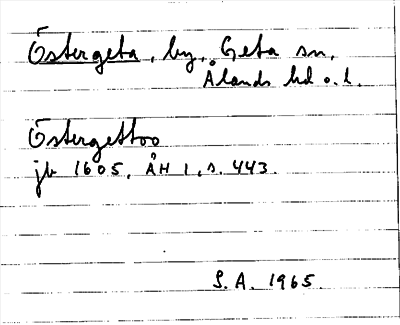 Östergeta, by, Geta sn,
Ålands hd o. l.
Östergettoo
jb 1605, ÅH 1, s. 443.
S.A. 1965